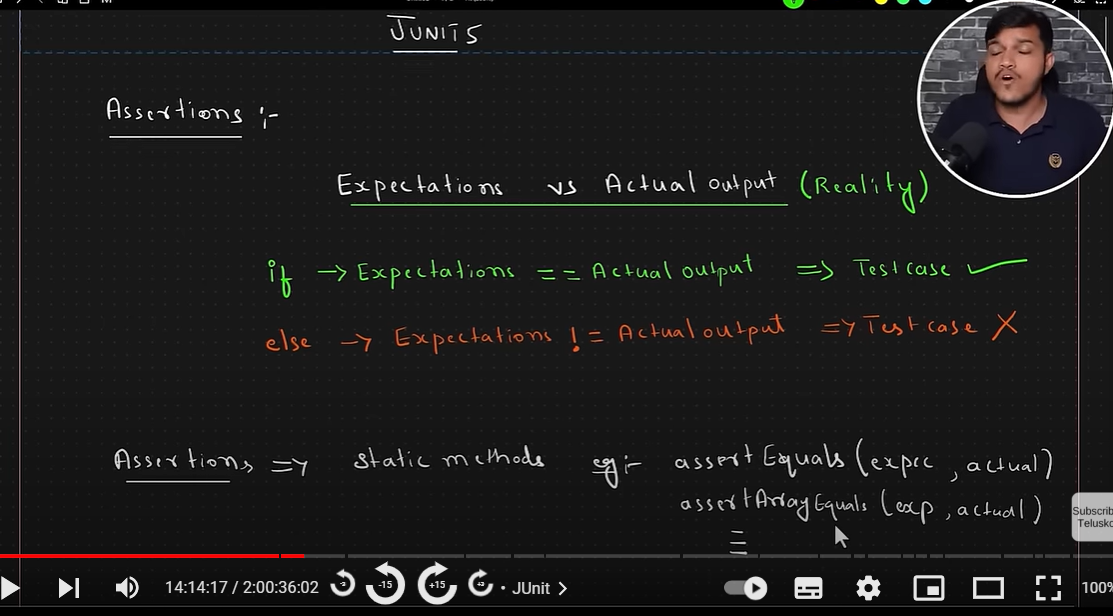 JUNIT5
Assertions :-
Expectations vs Actual output (Reality)
if → Expectations == Actual output => Testcase ✓
else → Expectations != Actual output => Testcase X
Assertions => static methods eg:- assertEquals(expec, actual)
assertArrayEquals (exp, actual)
Subscrib
Telusko
14:14:17 / 2:00:36:02
-15
+15
• JUnit >
100%